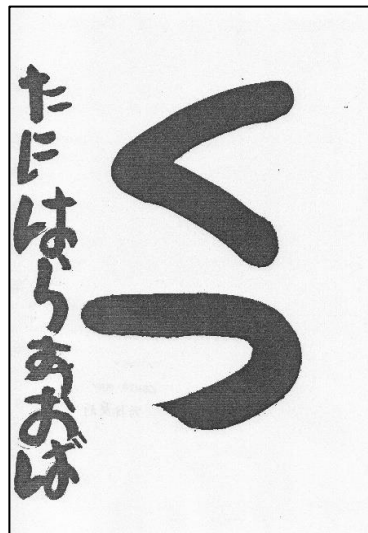 くつ
たにはらあおば